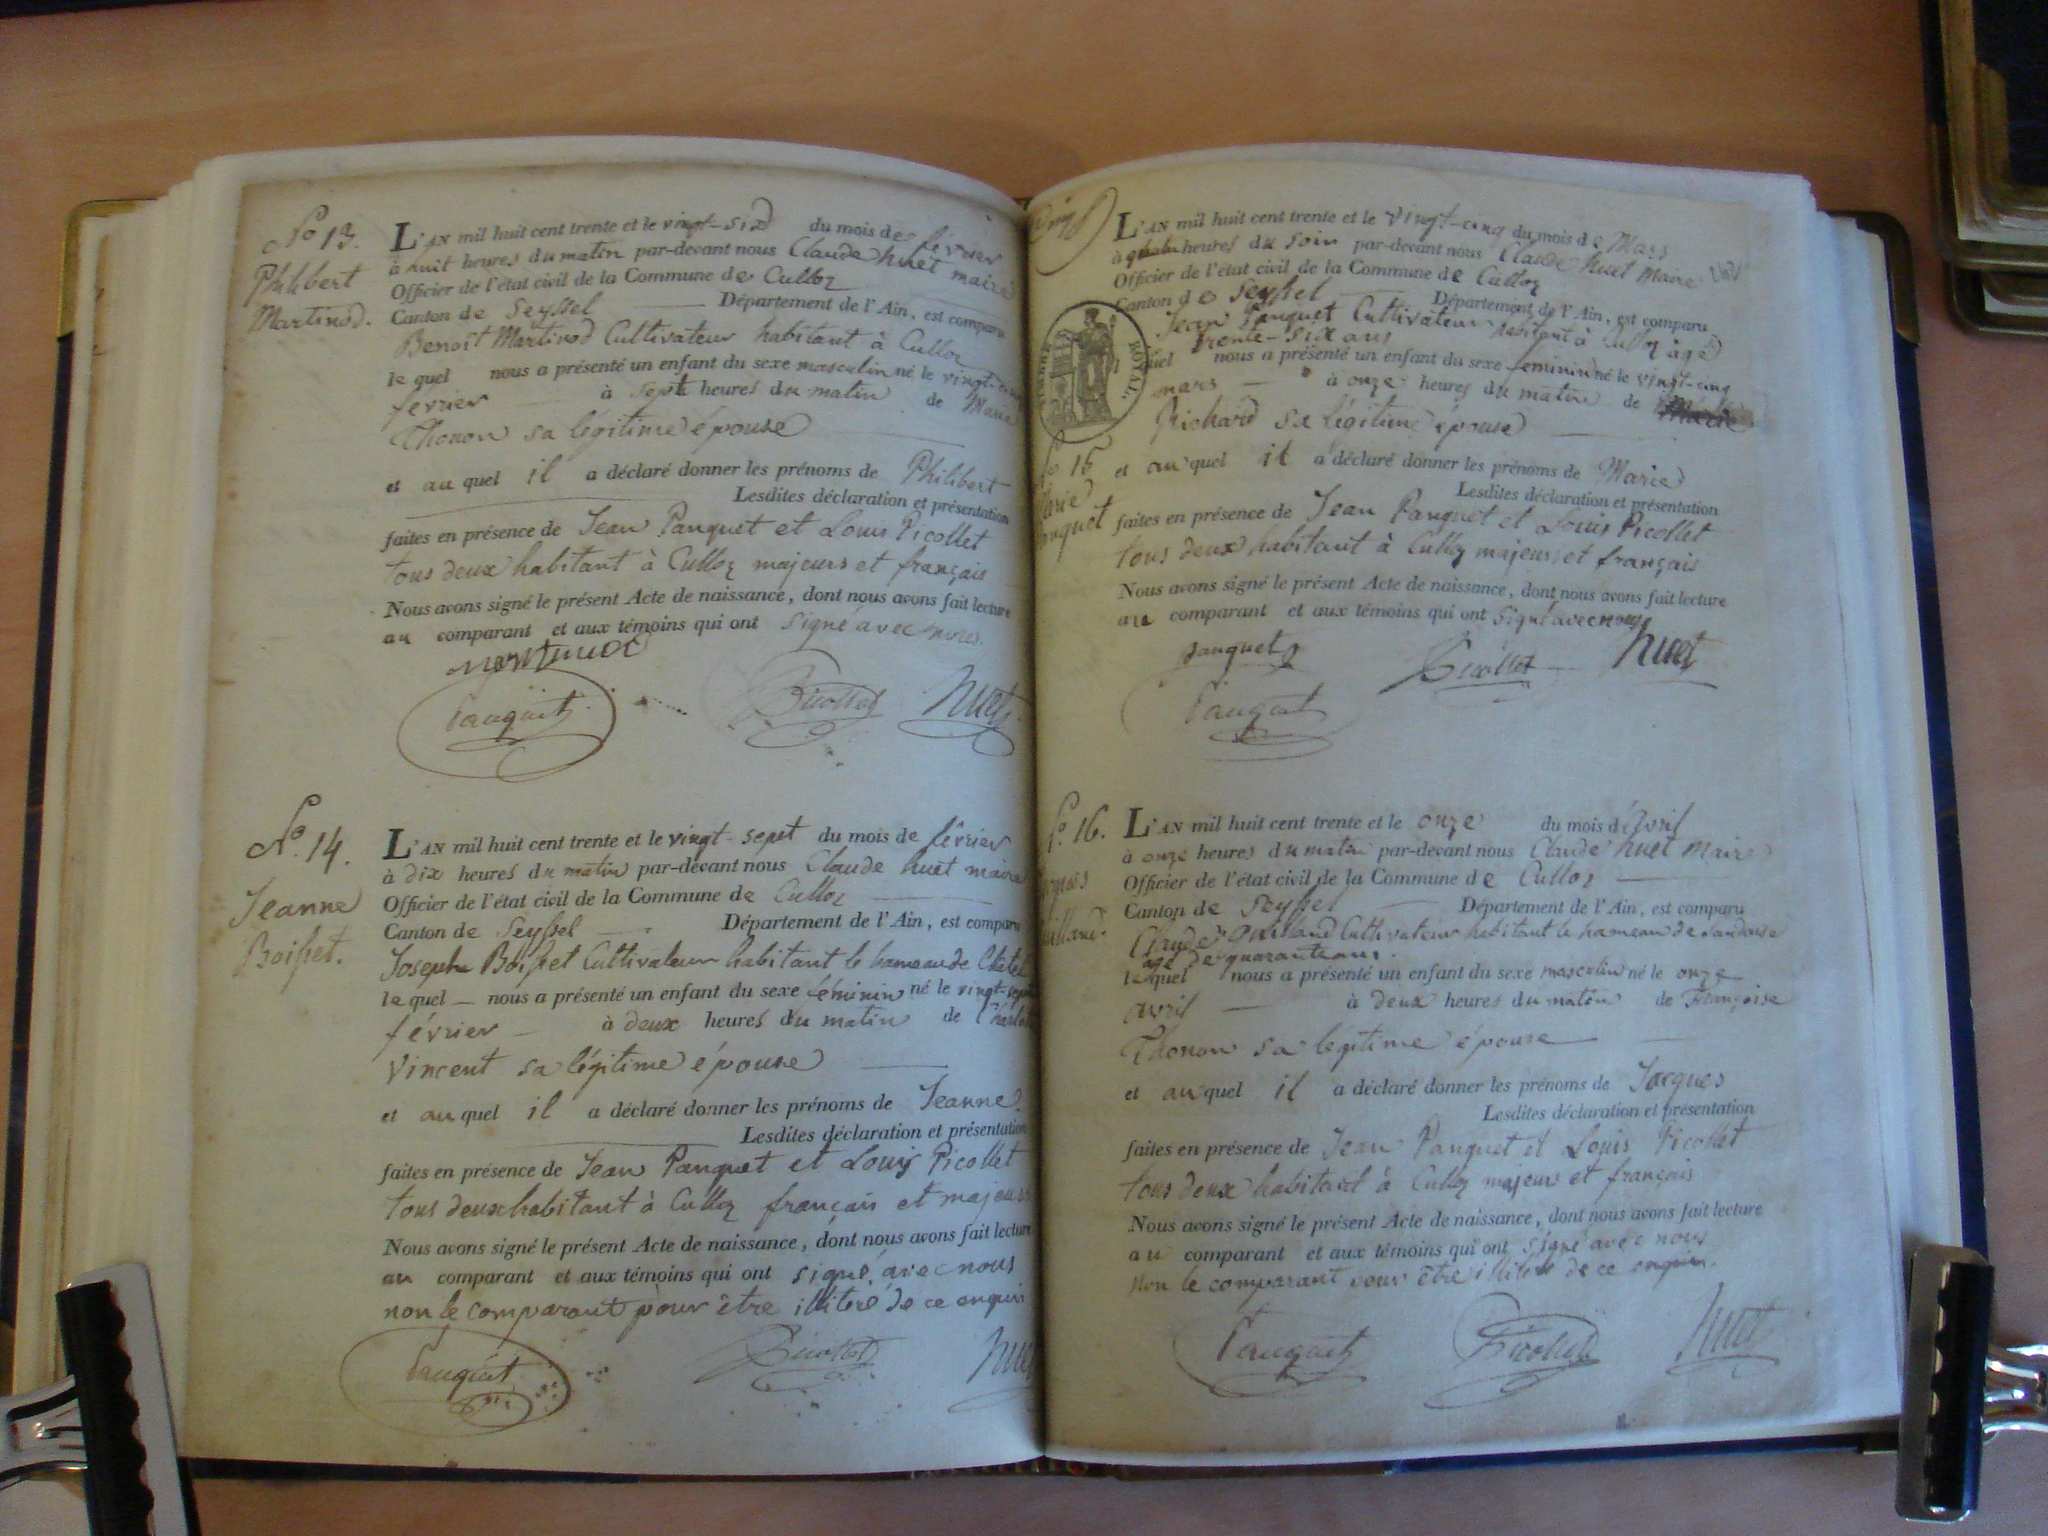 No 13.
Philibert
Martinod.
L'AN mil huit cent trente et le vingt-six du mois de février
à huit heures du matin par-devant nous Claude huet maire
Officier de l'état civil de la Commune de Culloz
Canton de Seyssel Département de l'Ain, est comparu
Benoit Martinod Cultivateur habitant à Culloz
le quel nous a présenté un enfant du sexe masculin né le vingt-cinq
février à sept heures du matin de Marie
Thonon sa légitime épouse
et au quel il a déclaré donner les prénoms de Philibert
Lesdites déclaration et présentation
faites en présence de Jean Panquet et Louis Picollet
tous deux habitant à Culloz majeurs et français
Nous avons signé le présent Acte de naissance, dont nous avons fait lecture
au comparant et aux témoins qui ont signé avec nous.
martinod
Panquet Picollet huet
No. 14.
Jeanne
Boisset.
L'AN mil huit cent trente et le vingt-sept du mois de février
à dix heures du matin par-devant nous Claude huet maire
Officier de l'état civil de la Commune de Culloz
Canton de Seyssel Département de l'Ain, est comparu
Joseph Boisset Cultivateur habitant le hameau de
le quel nous a présenté un enfant du sexe féminin né le vingt-sept
février à deux heures du matin de
Vincent sa légitime épouse
et au quel il a déclaré donner les prénoms de Jeanne.
Lesdites déclaration et présentation
faites en présence de Jean Panquet et Louis Picollet
tous deux habitant à Culloz français et majeurs
Nous avons signé le présent Acte de naissance, dont nous avons fait lecture
au comparant et aux témoins qui ont signé avec nous
non le comparant pour être illitéré de ce enquis
Panquet Picollet huet
L'AN mil huit cent trente et le vingt-cinq du mois de Mars
à quatre heures du soir par-devant nous Claude huet Maire
Officier de l'état civil de la Commune de Culloz
Canton de Seyssel Département de l'Ain, est comparu
Jean Panquet Cultivateur habitant à Culloz âgé
trente-six ans
quel nous a présenté un enfant du sexe feminin né le vingt-cinq
mars à onze heures du matin de Marie
Richard sa légitime épouse
TIMBRE ROYAL.
No 15
Marie
Panquet
et au quel il a déclaré donner les prénoms de Marie
Lesdites déclaration et présentation
faites en présence de Jean Panquet et Louis Picollet
tous deux habitant à Culloz majeurs et français
Nous avons signé le présent Acte de naissance, dont nous avons fait lecture
au comparant et aux témoins qui ont signé avec nous
panquet Picollet huet
Panquet
No. 16.
Jacques
L'AN mil huit cent trente et le onze du mois d'avril
à onze heures du matin par-devant nous Claude huet Maire
Officier de l'état civil de la Commune de Culloz
Canton de Seyssel Département de l'Ain, est comparu
Claude Cultivateur habitant le hameau de
agé de quarante ans.
le quel nous a présenté un enfant du sexe masculin né le onze
avril à deux heures du matin de Françoise
Thonon sa légitime épouse
et au quel il a déclaré donner les prénoms de Jacques
Lesdites déclaration et présentation
faites en présence de Jean Panquet et Louis Picollet
tous deux habitant à Culloz majeurs et français
Nous avons signé le présent Acte de naissance, dont nous avons fait lecture
au comparant et aux témoins qui ont signé avec nous
non le comparant pour être illitéré de ce enquis.
Panquet Picollet huet